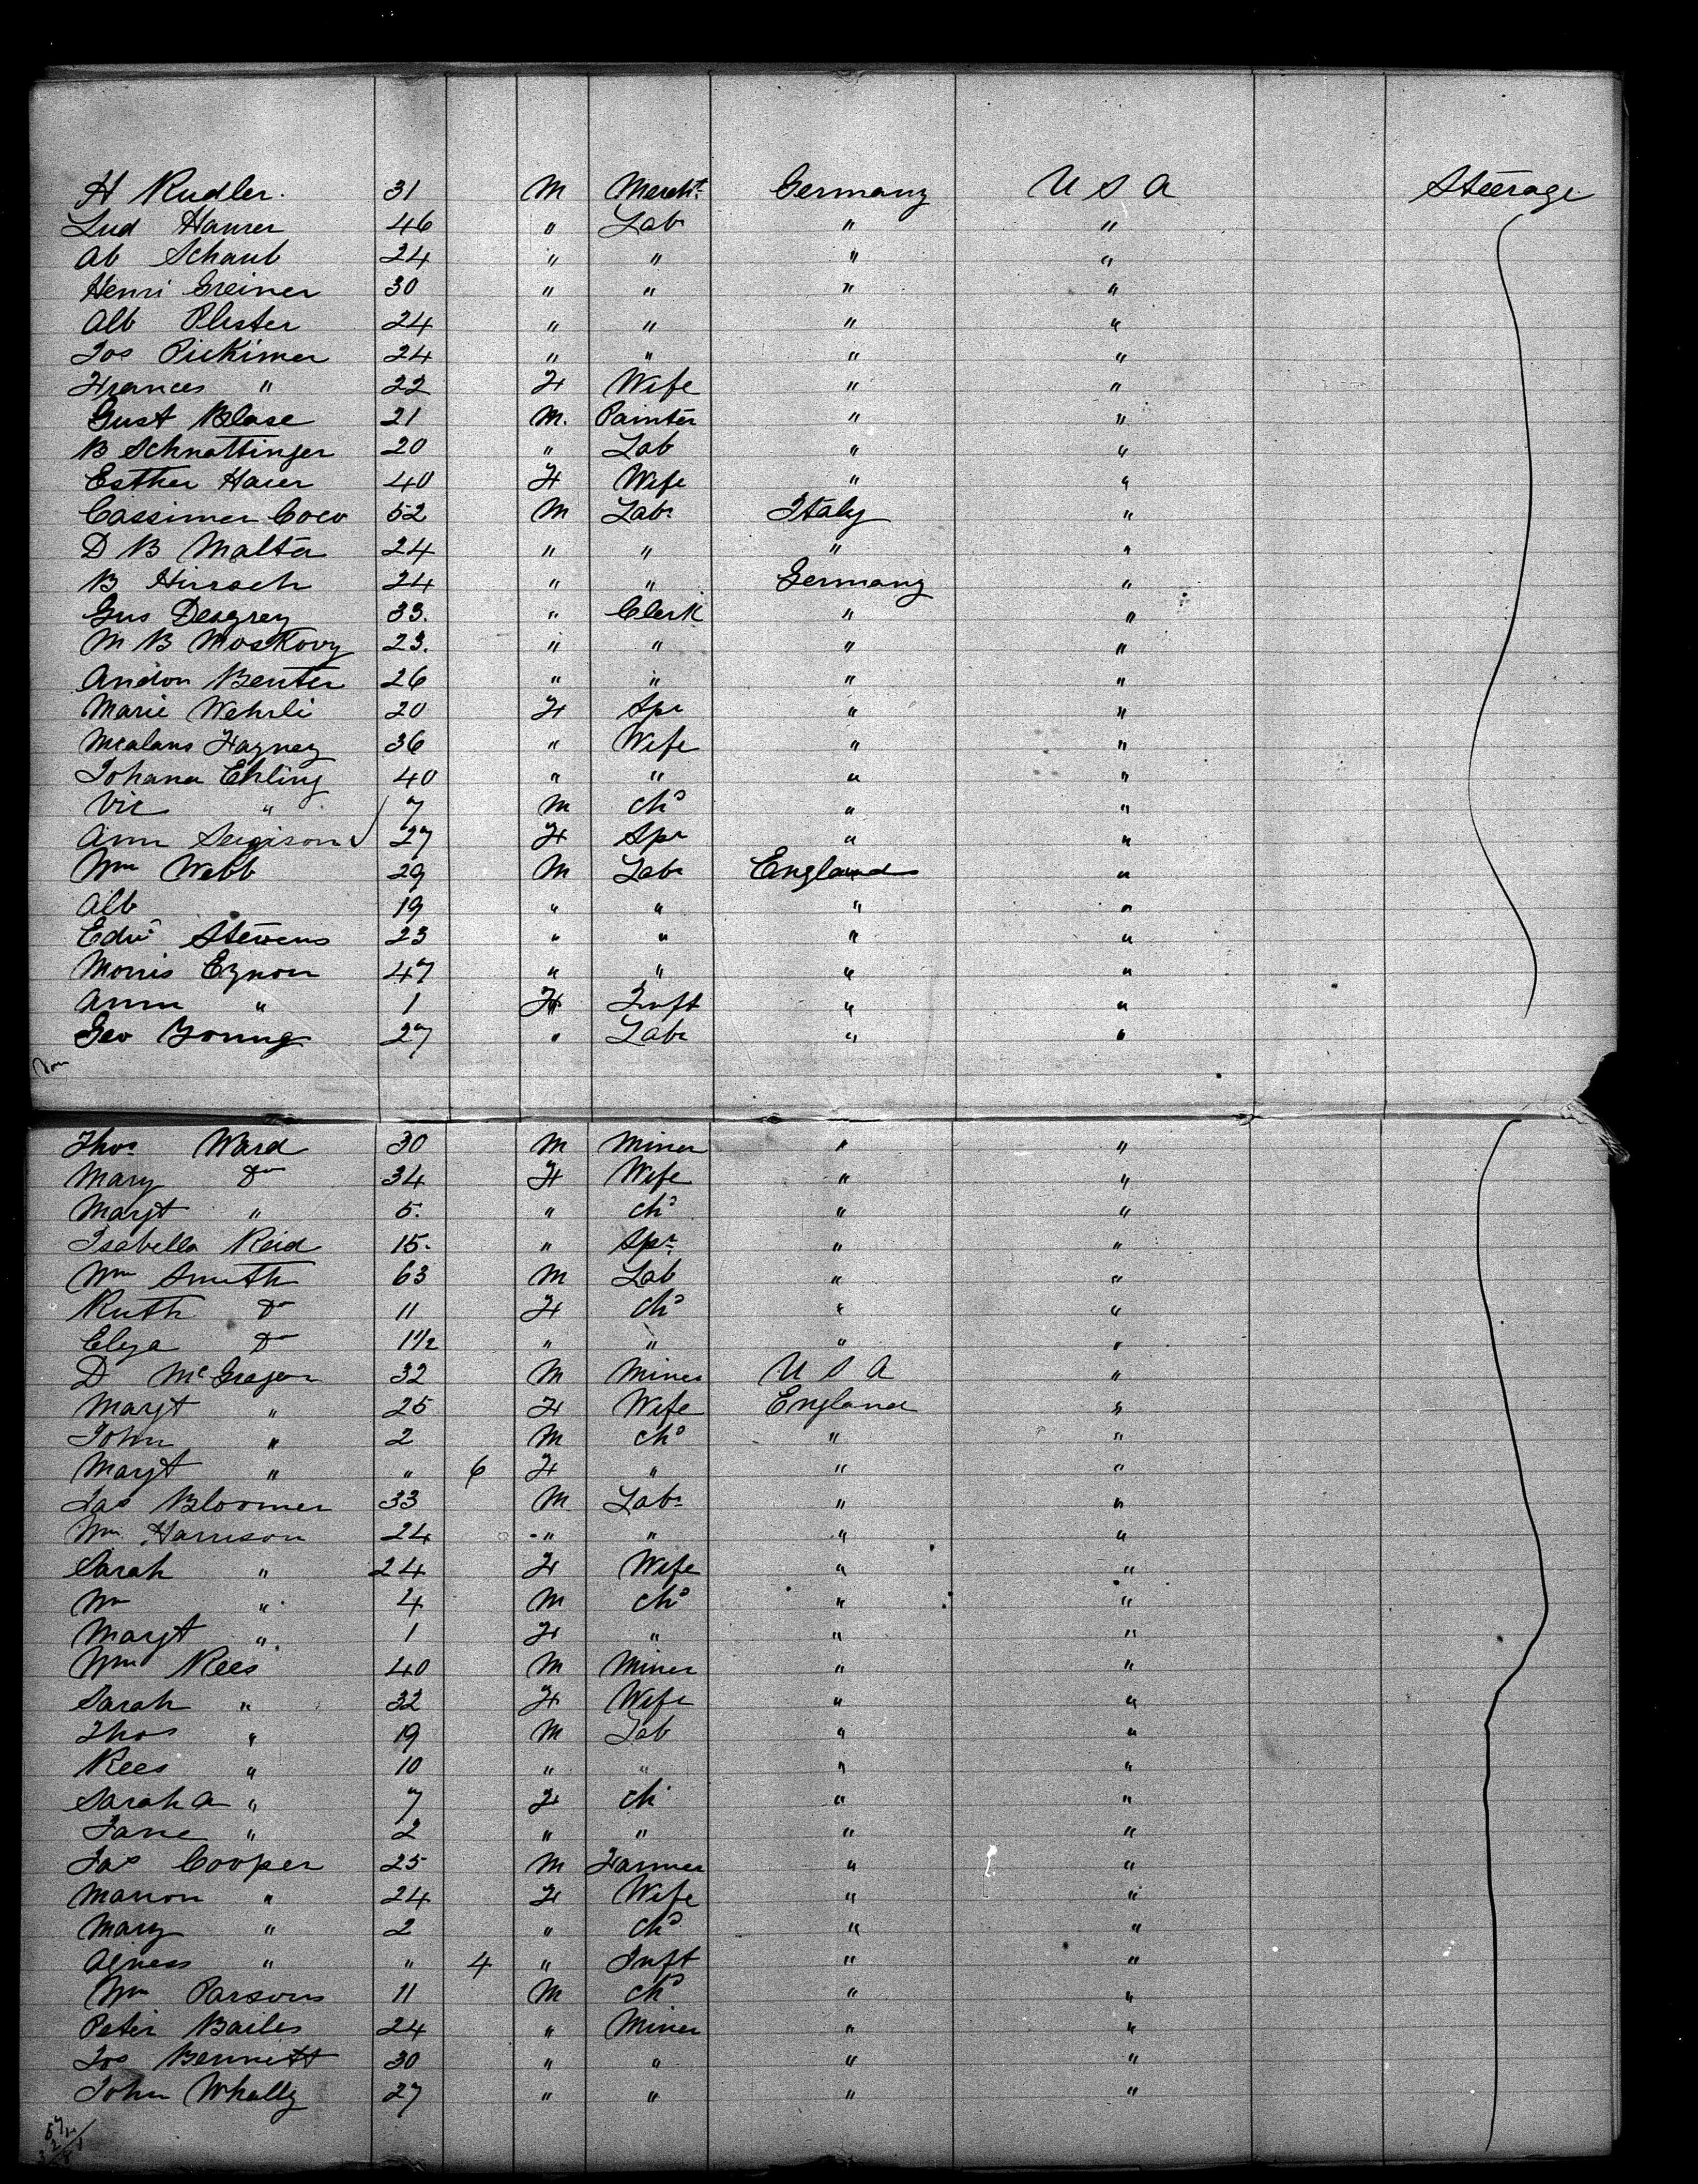 H Rudler. 31 M Mercht. Germany U S A Steerage
Lud Haurer 46 " Lab " "
Ab Schaub 24 " " " "
Henri Greiner 30 " " " "
Alb Plister 24 " " " "
Jos Pickimer 24 " " " "
Frances " 22 F Wife " "
Gust Blase 21 M. Painter " "
B Schnattinger 20 " Lab " "
Esther Harer 40 F Wife " "
Cassimer Coco 52 M Labr Italy "
D B Malta 24 " " " "
B Hirsch 24 " " Germany "
Gus Desgrey 33. " Clerk " "
M B Moskovy 23. " " " "
Andon Benter 26 " " " "
Marie Wehrli 20 F Spr " "
Mealans Hagney 36 " Wife " "
Johana Ehling 40 " " " "
Vic " 7 M chd " "
Ann Seigison 27 F Spr " "
Wm Webb 29 M Labr England "
Alb 19 " " " "
Edwd Stevens 23 " " " "
Morris Eynon 47 " " " "
Ann " 1 F Inft " "
Geo Young 27 " Labr " "
Thos Ward 30 M Miner " "
Mary Do 34 F Wife " "
Margt " 5. " chd " "
Isabella Reid 15. " Spr " "
Wm Smith 63 M Lab " "
Ruth Do 11 F chd " "
Elya Do 1 1/2 " " " "
D McGregor 32 M Miner U S A "
Margt " 25 F Wife England "
John " 2 M chd " "
Margt " " 6 F " " "
Jas Bloomer 33 M Labr " "
Wm Harrison 24 " " " "
Sarah " 24 F Wife " "
Wm " 4 M chd " "
Margt " 1 F " " "
Wm Rees 40 M Miner " "
Sarah " 32 F Wife " "
Thos " 19 M Lab " "
Rees " 10 " " " "
Sarah A " 7 F ch " "
Jane " 2 " " " "
Jas Cooper 25 M Farmer " "
Marion " 24 F Wife " "
Mary " 2 " chd " "
Agness " " 4 " Inft " "
Wm Parsons 11 M chd " "
Peter Bailes 24 " Miner " "
Jos Bennett 30 " " " "
John Whally 27 " " " "